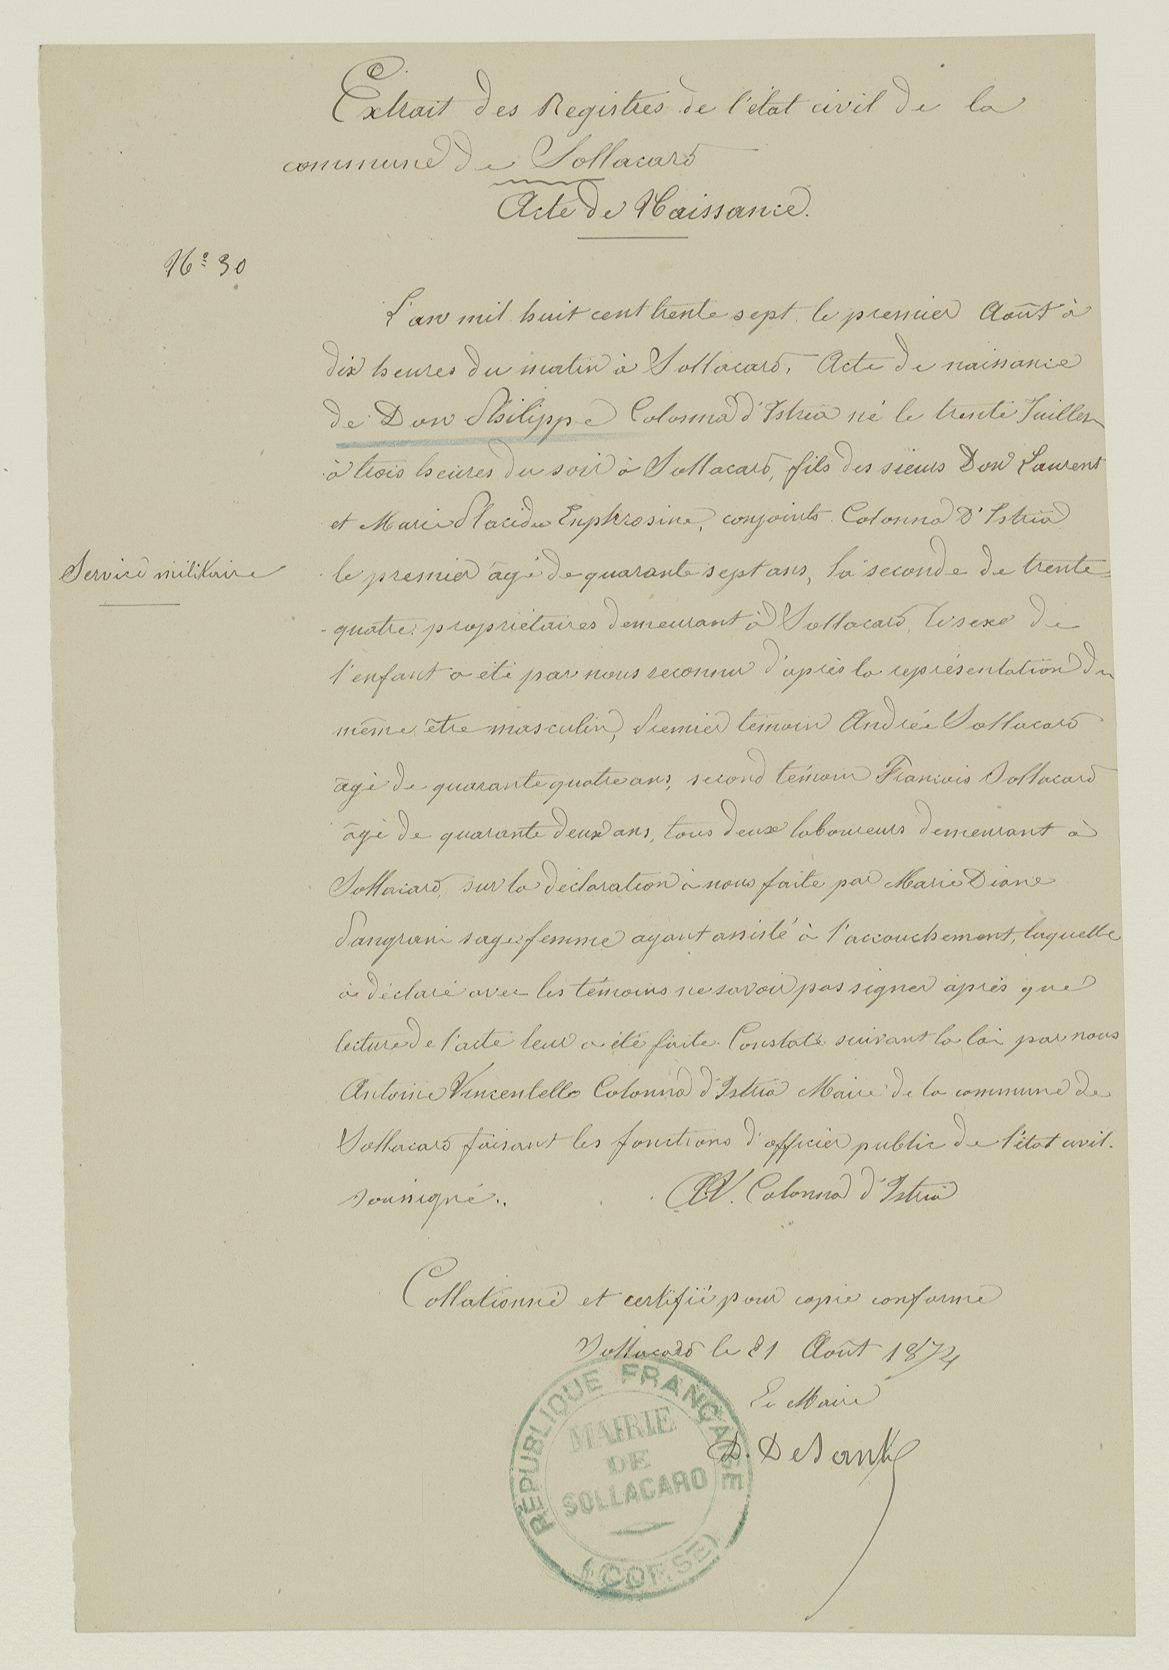 Extrait des Registres de l'état civil de la
commune de Sollacaro
Acte de Naissance.
N.º 30
L'an mil huit cent trente sept le premier Août à
dix heures du matin à Sollacaro, Acte de naissance
de Don Philippe Colonna d'Istria né le trente Juillet
à trois heures du soir à Sollacaro, fils des sieurs Don Laurent
et Marie Placide Euphrosine, conjoints Colonna d'Istria
Service militaire
le premier âgé de quarante sept ans, la seconde de trente
quatre, propriétaires demeurant à Sollacaro, le sexe de
l'enfant a été par nous reconnu d'après la représentation du
même être masculin, Premier témoin André Sollacaro
âgé de quarante quatre ans, second témoin François Sollacaro
âgé de quarante deux ans, tous deux laboureurs demeurant à
Sollacaro, sur la déclaration à nous faite par Marie Diane
sage femme ayant assisté à l'accouchement, laquelle
a déclaré avec les témoins ne savoir pas signer après que
lecture de l'acte leur a été faite. Constaté suivant la loi par nous
Antoine Vincentello Colonna d'Istria Maire de la commune de
Sollacaro faisant les fonctions d'officier public de l'état civil.
soussigné. AV. Colonna d'Istria
Collationné et certifié pour copie conforme
Sollacaro le 21 Août 1874
Le Maire
RÉPUBLIQUE FRANÇAISE
MAIRIE
DE
SOLLACARO
(CORSE)